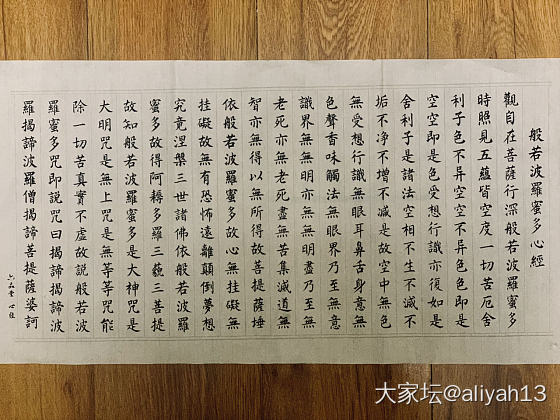 般若波羅蜜多心經
觀自在菩薩行深般若波羅蜜多
時照見五蘊皆空度一切苦厄舍
利子色不异空空不异色色即是
空空即是色受想行識亦復如是
舍利子是諸法空相不生不滅不
垢不净不增不減是故空中無色
無受想行識無眼耳鼻舌身意無
色聲香味觸法無眼界乃至無意
識界無無明亦無無明盡乃至無
老死亦無老死盡無苦集滅道無
智亦無得以無所得故菩提薩埵
依般若波羅蜜多故心無挂礙無
挂礙故無有恐怖遠離顛倒夢想
究竟涅槃三世諸佛依般若波羅
蜜多故得阿耨多羅三藐三菩提
故知般若波羅蜜多是大神咒是
大明咒是無上咒是無等等咒能
除一切苦真實不虛故説般若波
羅蜜多咒即説咒曰揭諦揭諦波
羅揭諦波羅僧揭諦菩提薩婆訶
大家坛@aliyah13